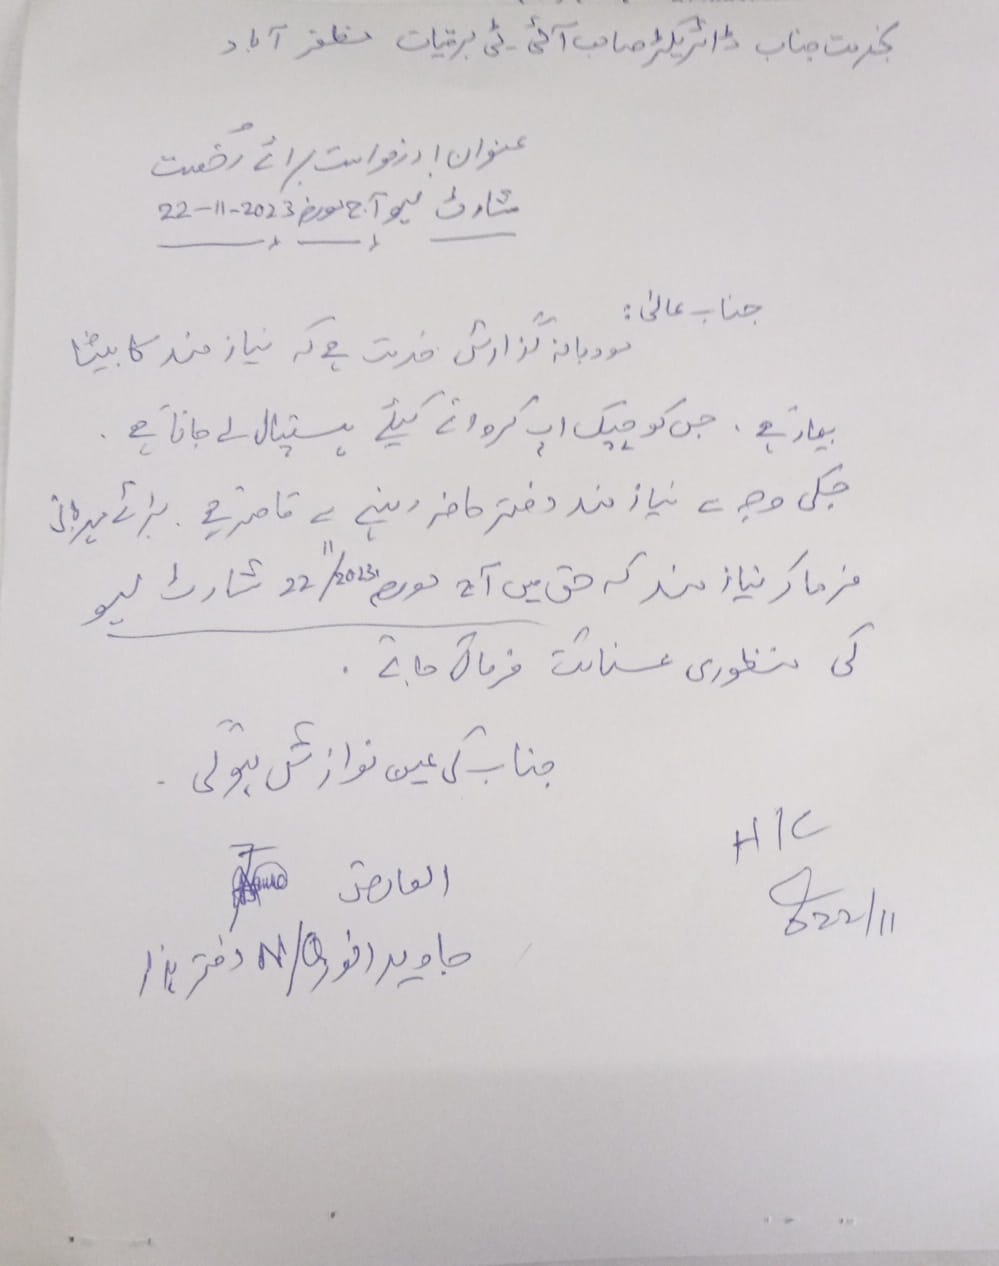 بخدمت جناب ڈائریکٹر صاحب آئی۔ٹی برقیات مظفر آباد
عنوان: درخواست برائے رخصت
شارٹ لیو آج مورخہ 22-11-2023
جناب عالی:
مودبانہ گزارش خدمت ہے کہ نیاز مند کا بیٹا
بیمار ہے ۔ جس کو چیک اپ کروانے کیلئے ہسپتال لے جانا ہے ۔
جسکی وجہ سے نیاز مند دفتر حاضر رہنے سے قاصر ہے ۔ برائے مہربانی
فرما کر نیاز مند کے حق میں آج مورخہ 22/11/2023 شارٹ لیو
کی منظوری عنائت فرمائی جائے ۔
جناب کی عین نوازش ہوگی ۔
H/C
22/11
العارض
جاوید انور N/Q دفتر ہذا